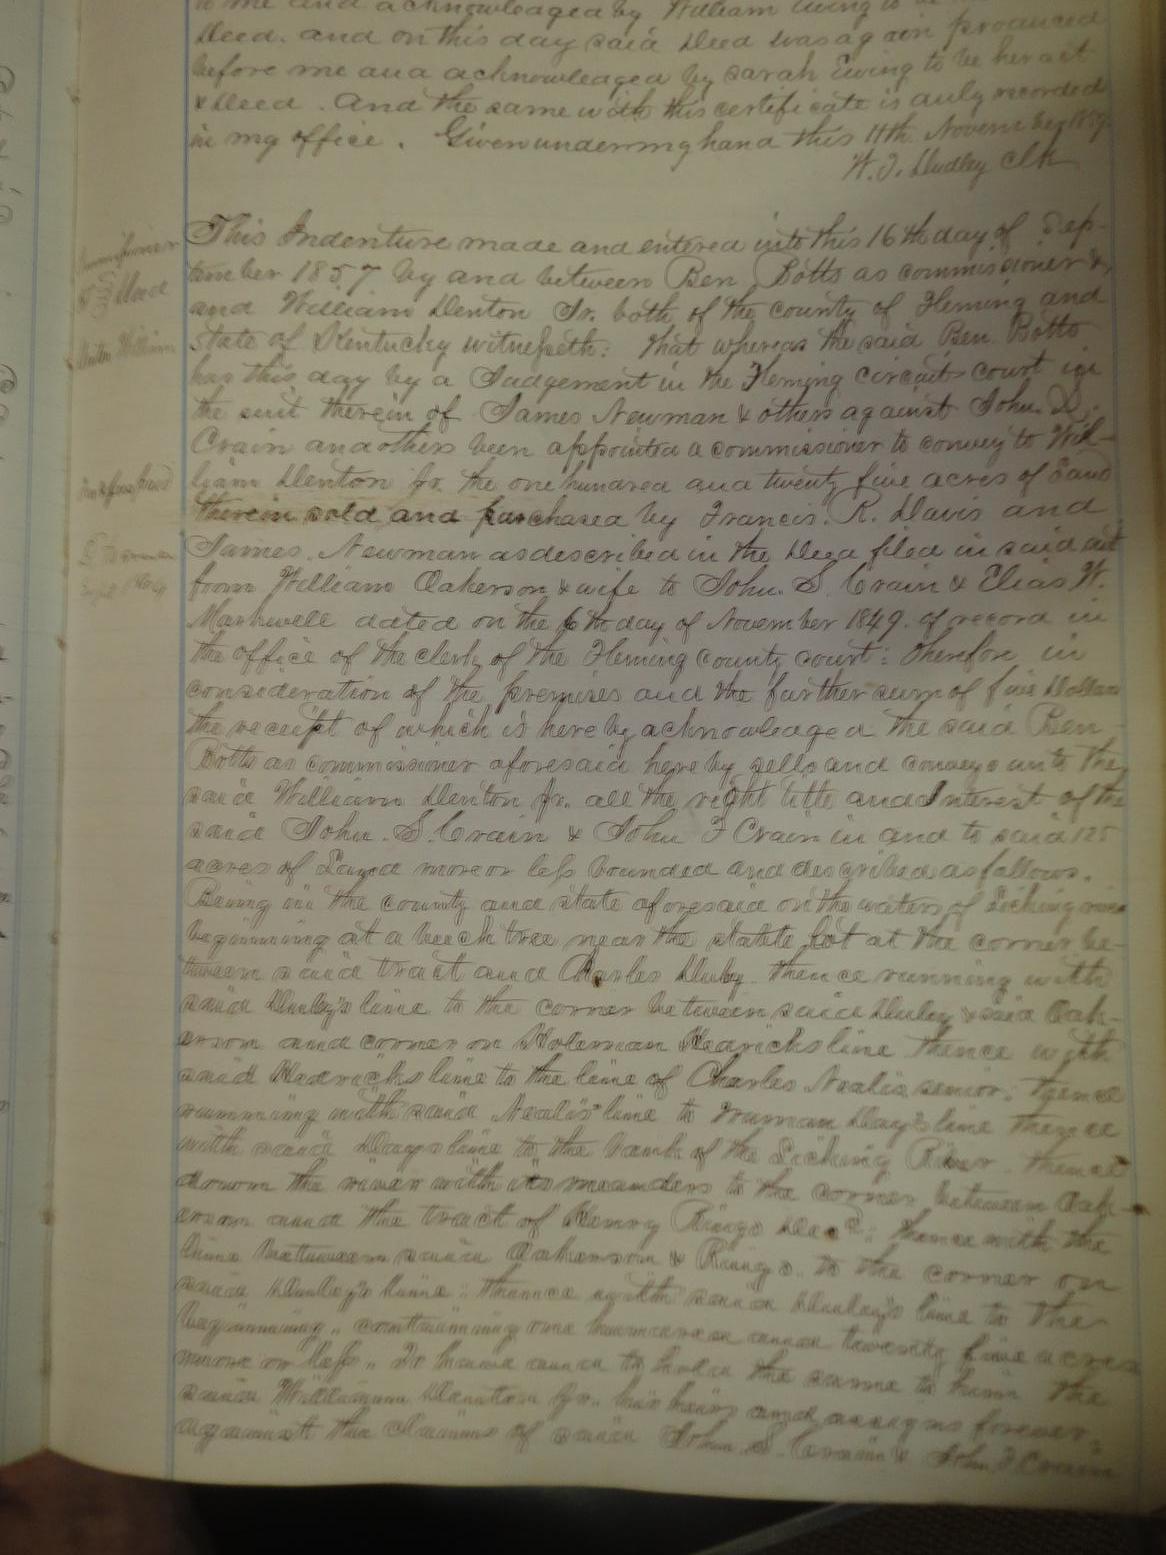 to me and acknowledged by William Ewing to be his
Deed. and on this day said Deed was again produced
before me and acknowledged by Sarah Ewing to be her act
& Deed. And the same with this certificate is duly recorded
in my office. Given under my hand this 11th November 1859
W. T. Dudley Clk
This Indenture made and entered into this 16th day of Sep-
tember 1857 by and between Ben Botts as commissioner &
and William Denton Jr. both of the county of Fleming and
State of Kentucky witnesseth: That whereas the said Ben. Botts
has this day by a Judgement in the Fleming circuit court in
the suit therein of James Newman & others against John. D.
Crain and others been appointed a commissioner to convey to Wil-
liam Denton Jr. the one hundred and twenty five acres of Land
therein sold and purchased by Francis. R. Davis and
James. Newman as described in the Deed filed in said suit
from William Oakerson & wife to John. S. Crain & Elias W.
Markwell dated on the 6th day of November 1849. of record in
the office of the clerk of the Fleming county court: Therefore in
consideration of the premises and the further sum of five Dollars
the receipt of which is hereby acknowledged The said Ben
Botts as commissioner aforesaid hereby sells and conveys unto the
said William Denton Jr. all the right title and Interest of the
said John. S. Crain & John F Crain in and to said 125
acres of Land more or less bounded and described as follows.
Being in the county and state aforesaid on the waters of Licking river
beginning at a beech tree near the state lot at the corner be-
tween said tract and Charles Duley. thence running with
said Duley's line to the corner between said Duley & said Oak-
erson and corner on Holeman Hedricks line thence with
said Hedricks line to the line of Charles Nealis senior: thence
running with said Nealis' line to Truman Day's line thence
with said Days line to the bank of the Licking River. thence
down the river with its meanders to the corner between Oak-
erson and the tract of Henry Ringo Decd.: thence with the
line between said Oakerson & Ringo. to the corner on
said Duley's line: thence with said Duley's line to the
beginning,, containing one hundred and twenty five acres
more or less,, To have and to hold the same to him the
said William Denton Jr. his heirs and assigns forever,
against the Claims of said John. S. Crain & John. F Crain